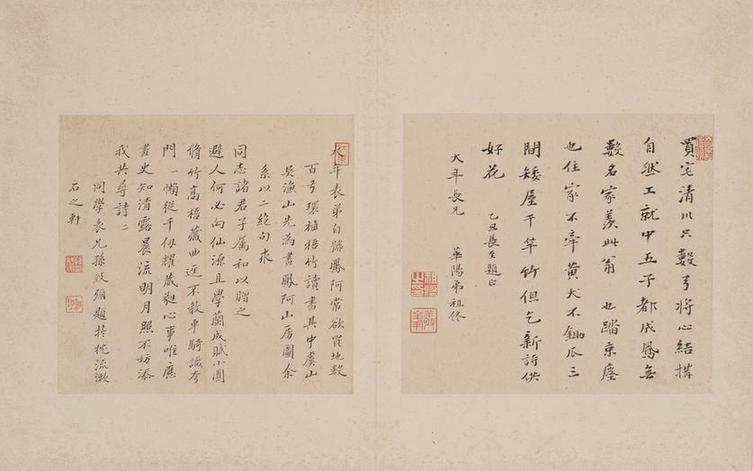 買宅清川只數弓將心結搆
自然工就中五子都成鳳無
數名家羨此翁 也踏京塵
也住家不牽黃犬不鋤瓜三
間矮屋千竿竹但乞新詩供
好花 乙丑長至題正
大年長兄 華陽弟祖修
大年表弟自號鳳阿常欲買地數
百弓環植梧竹讀書其中虞山
吳漁山先為畫鳳阿山房圖余
系以二絕句求
同志諸君子屬和以贈之
避人何必向仙源且學蘭成賦小園
脩竹高梧藏曲逕不教車騎識
門 一嬾從千仞耀心事唯應
畫史知清露晨流明月照不妨添
我共尋詩二
同學表兄孫致彌題於桃流
石之軒